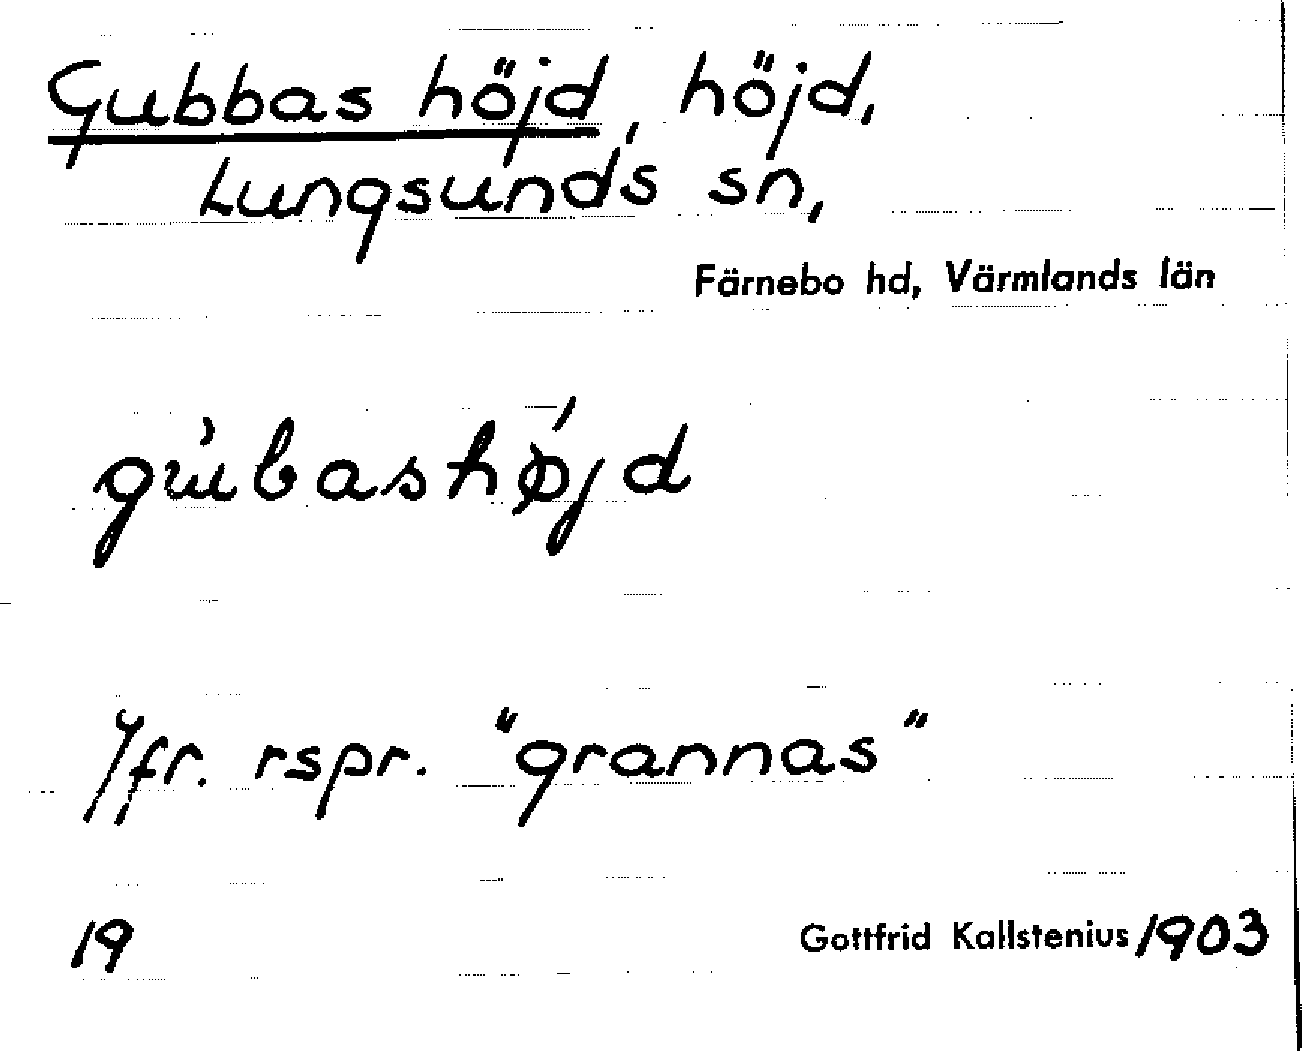 Gubbas höjd, höjd,
Lungsunds sn,
Färnebo hd, Värmlands län
gubashøjd
Jfr. rspr. "grannas"
19 Gottfrid Kallstenius 1903